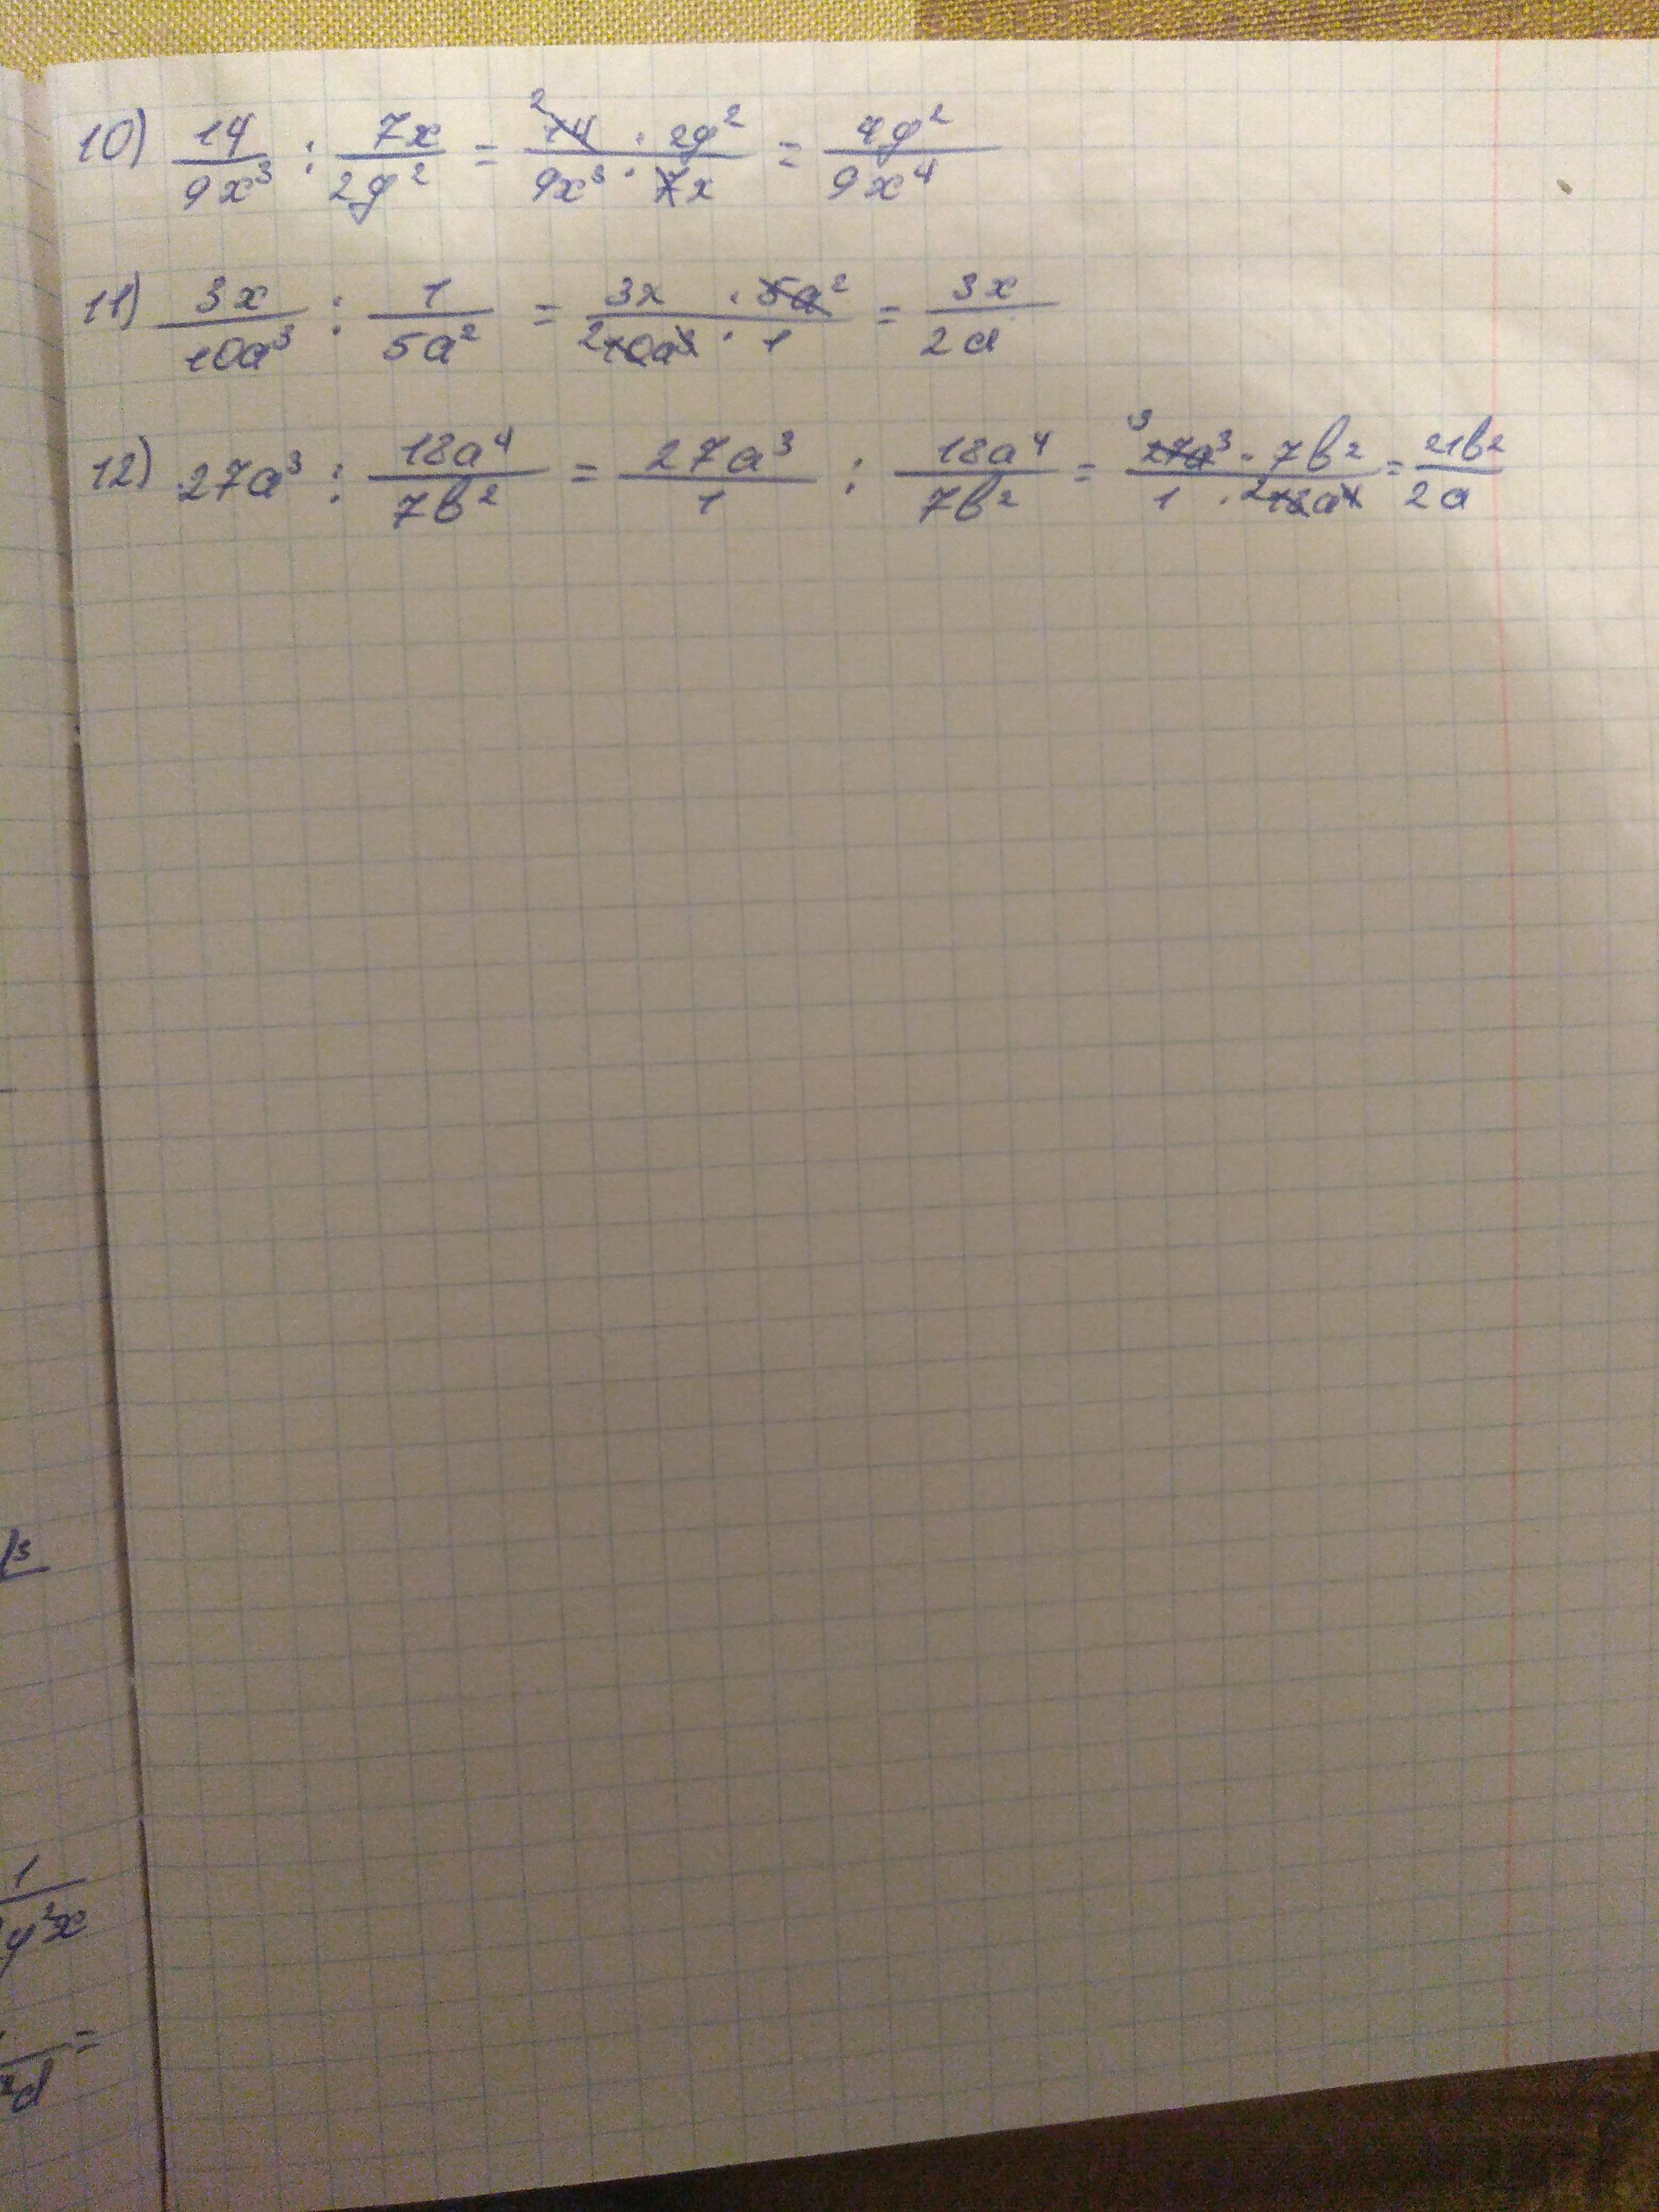 10) 14/9x³ : 7x/2y² = ²14 · 2y²/9x³ · 7x = 4y²/9x⁴
11) 3x/10a³ : 1/5a² = 3x · 5a²/²10a³ · 1 = 3x/2a
12) 27a³ : 18a⁴/7b² = 27a³/1 : 18a⁴/7b² = ³27a³ · 7b²/1 · ²18a⁴ = 21b²/2a
1/y²x
d =